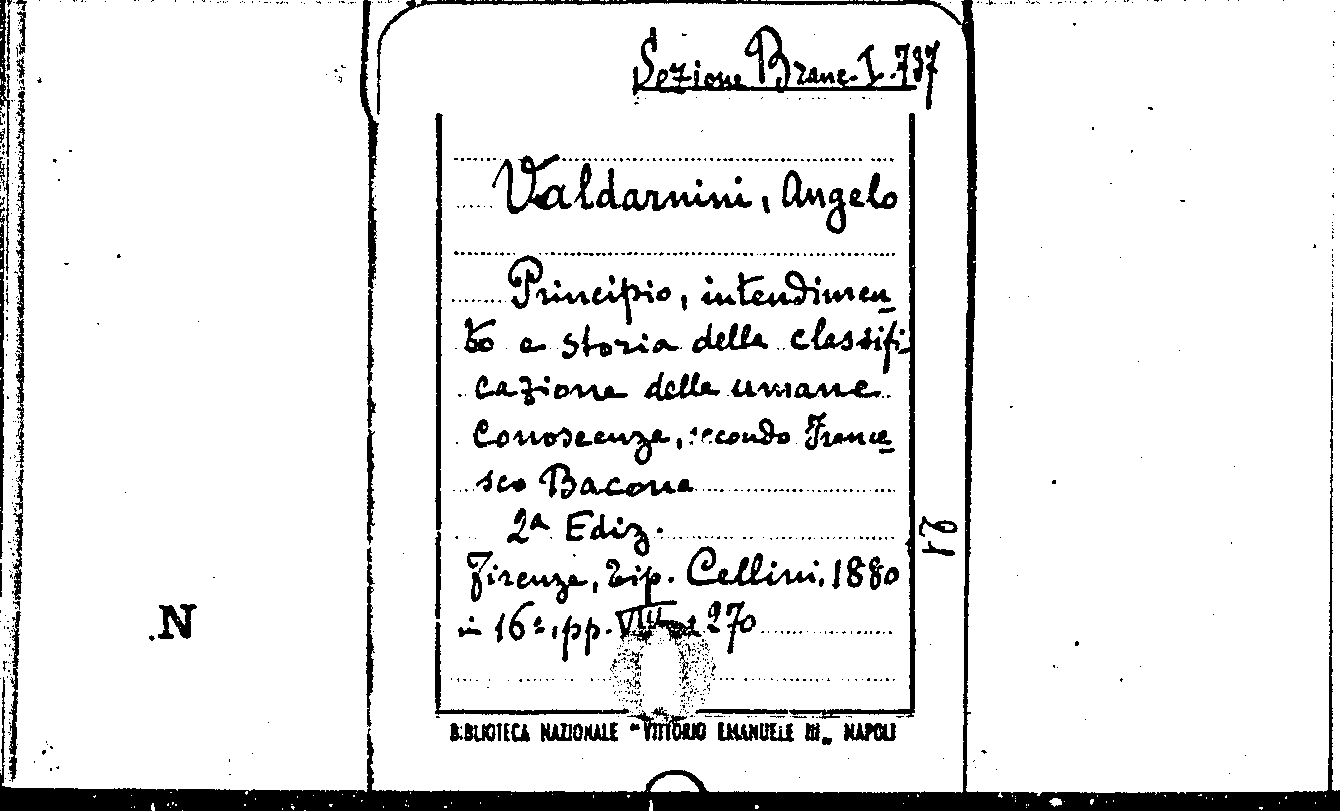 Sezione Branc. I. 737
Valdarnini, Angelo
Principio, intendimen
to e storia della classifi-
cazione delle umane
conoscenze, secondo France
sco Bacone
2ª Ediz.
Firenze, Tip. Cellini, 1880
in 16º, pp. VIII, 270
BIBLIOTECA NAZIONALE "VITTORIO EMANUELE III„ NAPOLI
.N